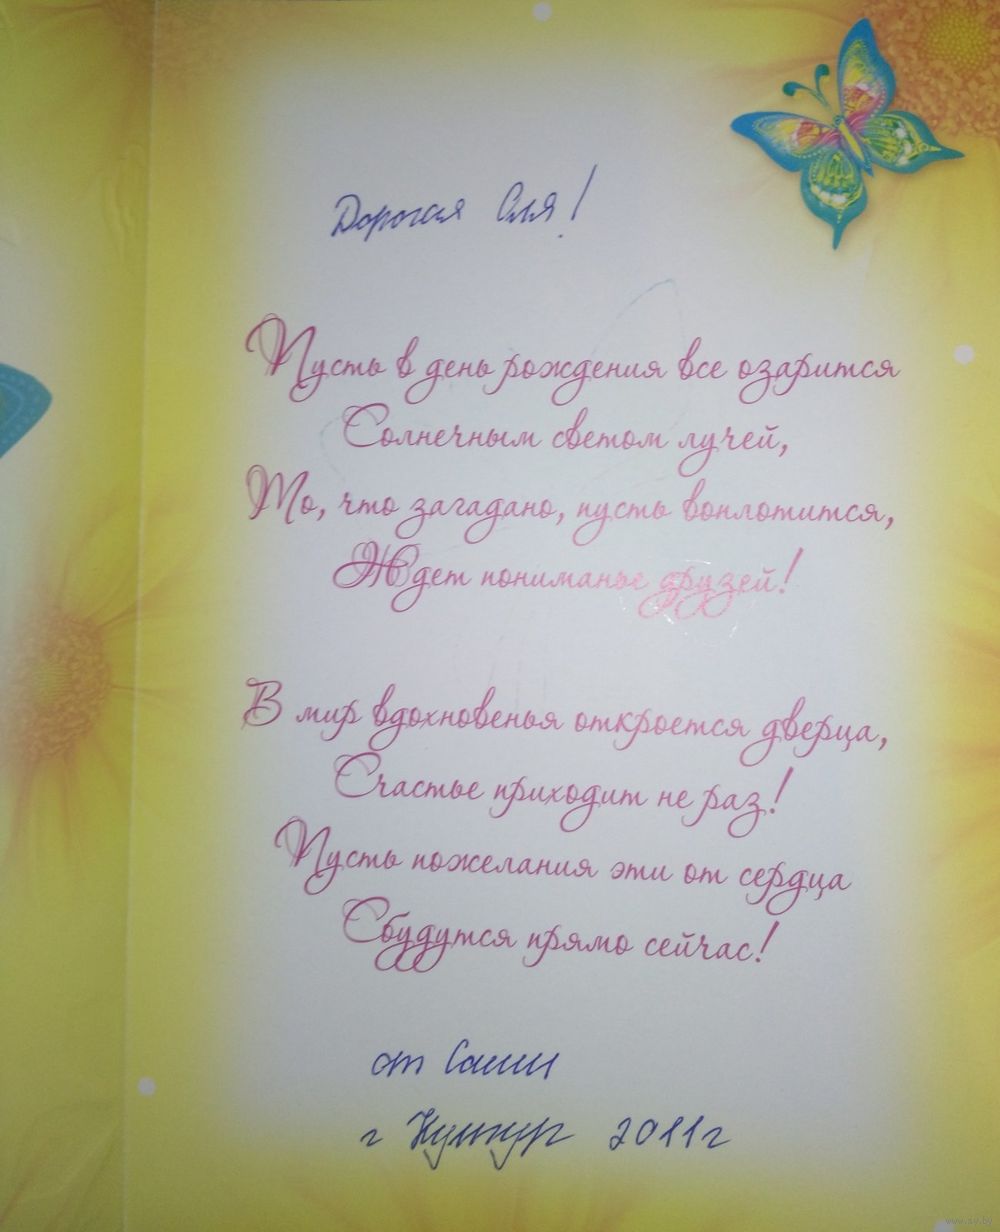 Дорогая Оля!
Пусть в день рождения все озарится
Солнечным светом лучей,
То, что загадано, пусть воплотится,
Ждет пониманье друзей!
В мир вдохновенья откроется дверца,
Счастье приходит не раз!
Пусть пожелания эти от сердца
Сбудутся прямо сейчас!
от Саши
г Кунгур 2011г
www.ay.by